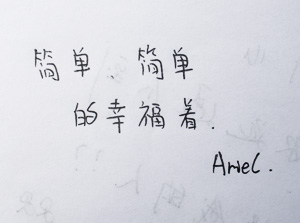 简单、简单
的幸福着.
Ariel.